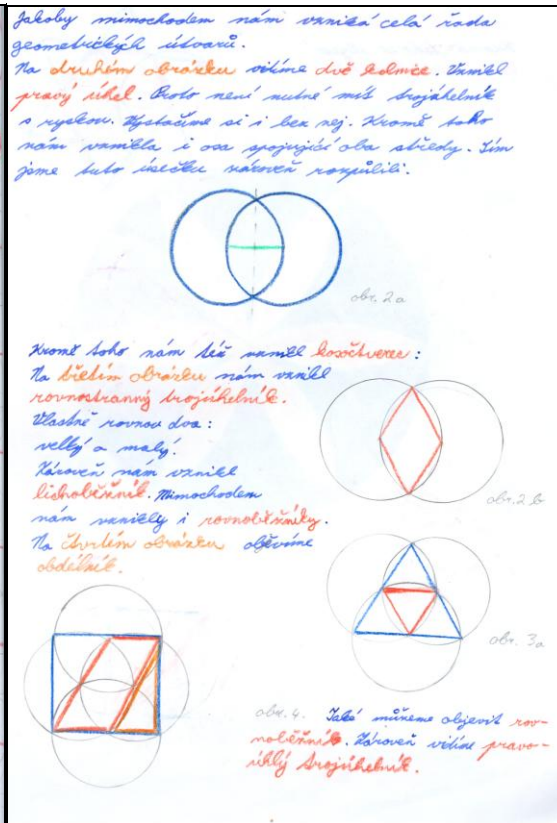 Jakoby mimochodem nám vzniká celá řada
geometrických útvarů.
Na druhém obrázku vidíme dvě kolmice. Vznikl
pravý úhel. Proto není nutné mít trojúhelník
s ryskou. Vystačíme si i bez nej. Kromě toho
nám vznikla i osa spojující oba středy. Tím
jsme tuto úsečku zároveň rozpůlili.
obr. 2a
Kromě toho nám též vznikl kosočtverec :
Na třetím obrázku nám vznikl
rovnostranný trojúhelník.
Vlastně rovnou dva :
velký a malý.
Zároveň nám vznikl
lichoběžník. Mimochodem
nám vznikly i rovnoběžníky.
Na čtvrtém obrázku objevíme
obdélník.
obr. 2b
obr. 3a
obr. 4. Také můžeme objevit rov-
noběžník. Zároveň vidíme pravo-
úhlý trojúhelník.